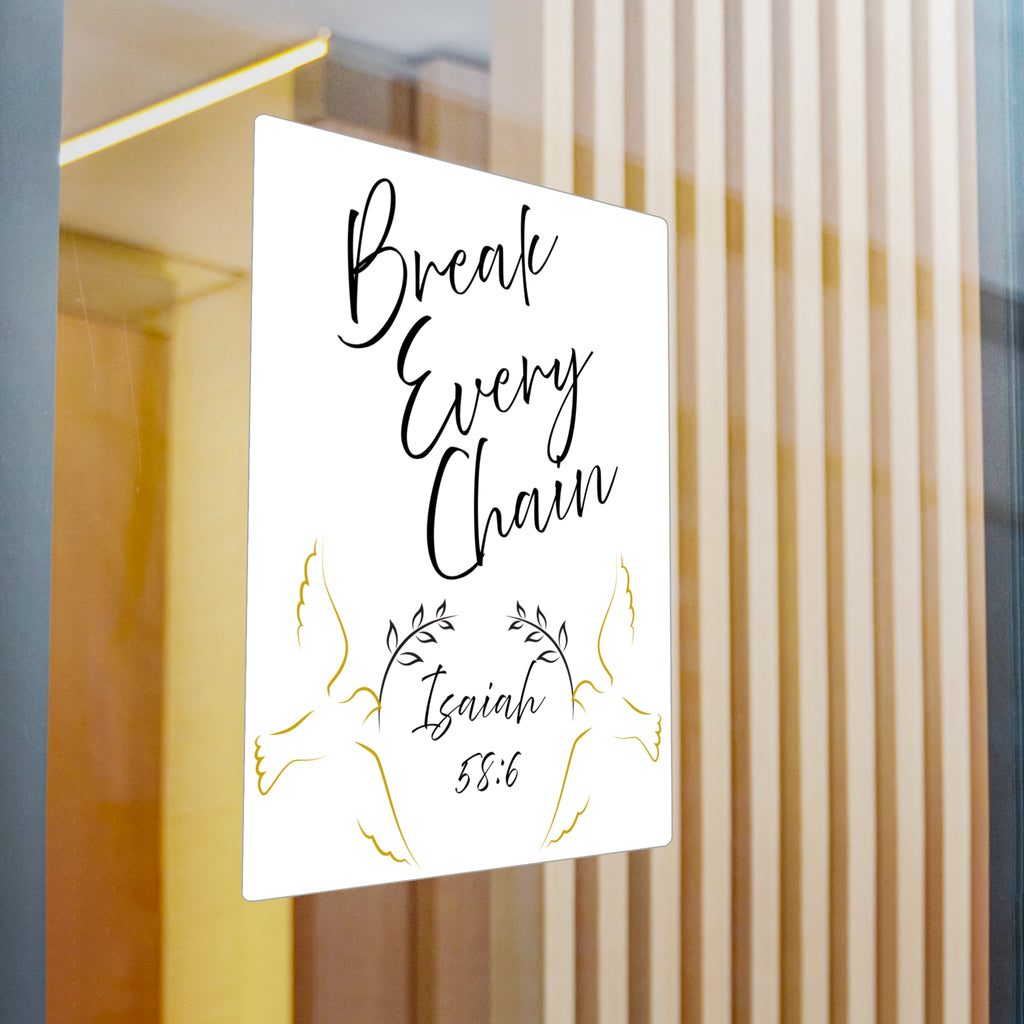 Break
Every
Chain
Isaiah
58:6